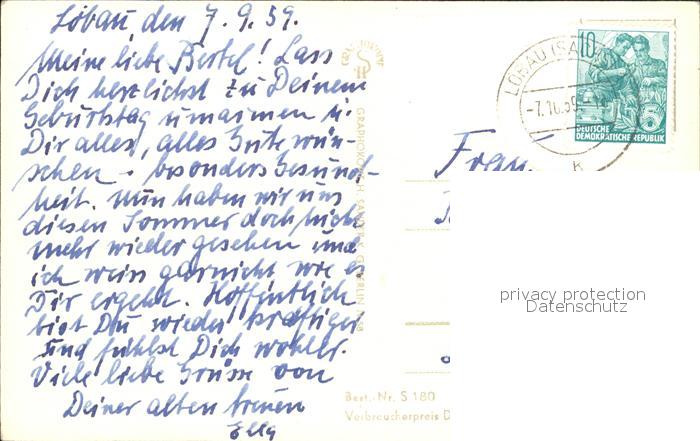 Löbau, den 7.9.59.
Meine liebe Bertel! Lass
Dich herzlichst zu Deinem
Geburtstag umarmen u.
Dir alles, alles Gute wün-
schen - besonders Gesund-
heit. Nun haben wir uns
diesen Sommer doch nicht
mehr wieder gesehen und
ich weiss garnicht wie es
Dir ergeht. Hoffentlich
bist Du wieder kräftiger
und fühlst Dich wohler.
Viele liebe Grüsse von
Deiner alten treuen
Ella
GRAPHOKOPIE
Best.-Nr. S 180
Verbraucherpreis D
LÖBAU (SA
-7.10.59
10
DEUTSCHE
DEMOKRATISCHE REPUBLIK
Frau
privacy protection
Datenschutz